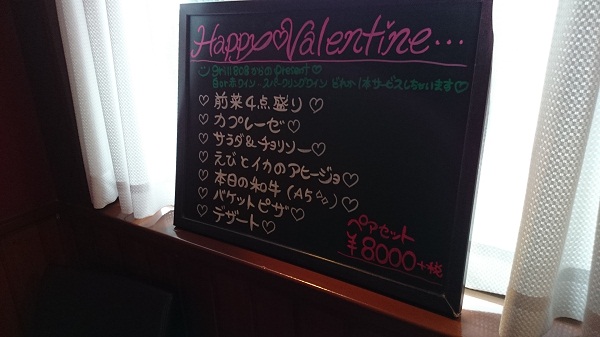 Happy♡Valentine...
grill BOBからの Present♡
Bor赤ワイン・スパークリングワイン どれか1本サービスしちゃいます♡
♡前菜4点盛り♡
♡カプレーゼ♡
♡サラダ&チョリソー♡
♡えびとイカのアヒージョ♡
♡本日の和牛(A5)♡
♡バケットピザ♡
♡デザート♡
ペアセット
¥8000+税